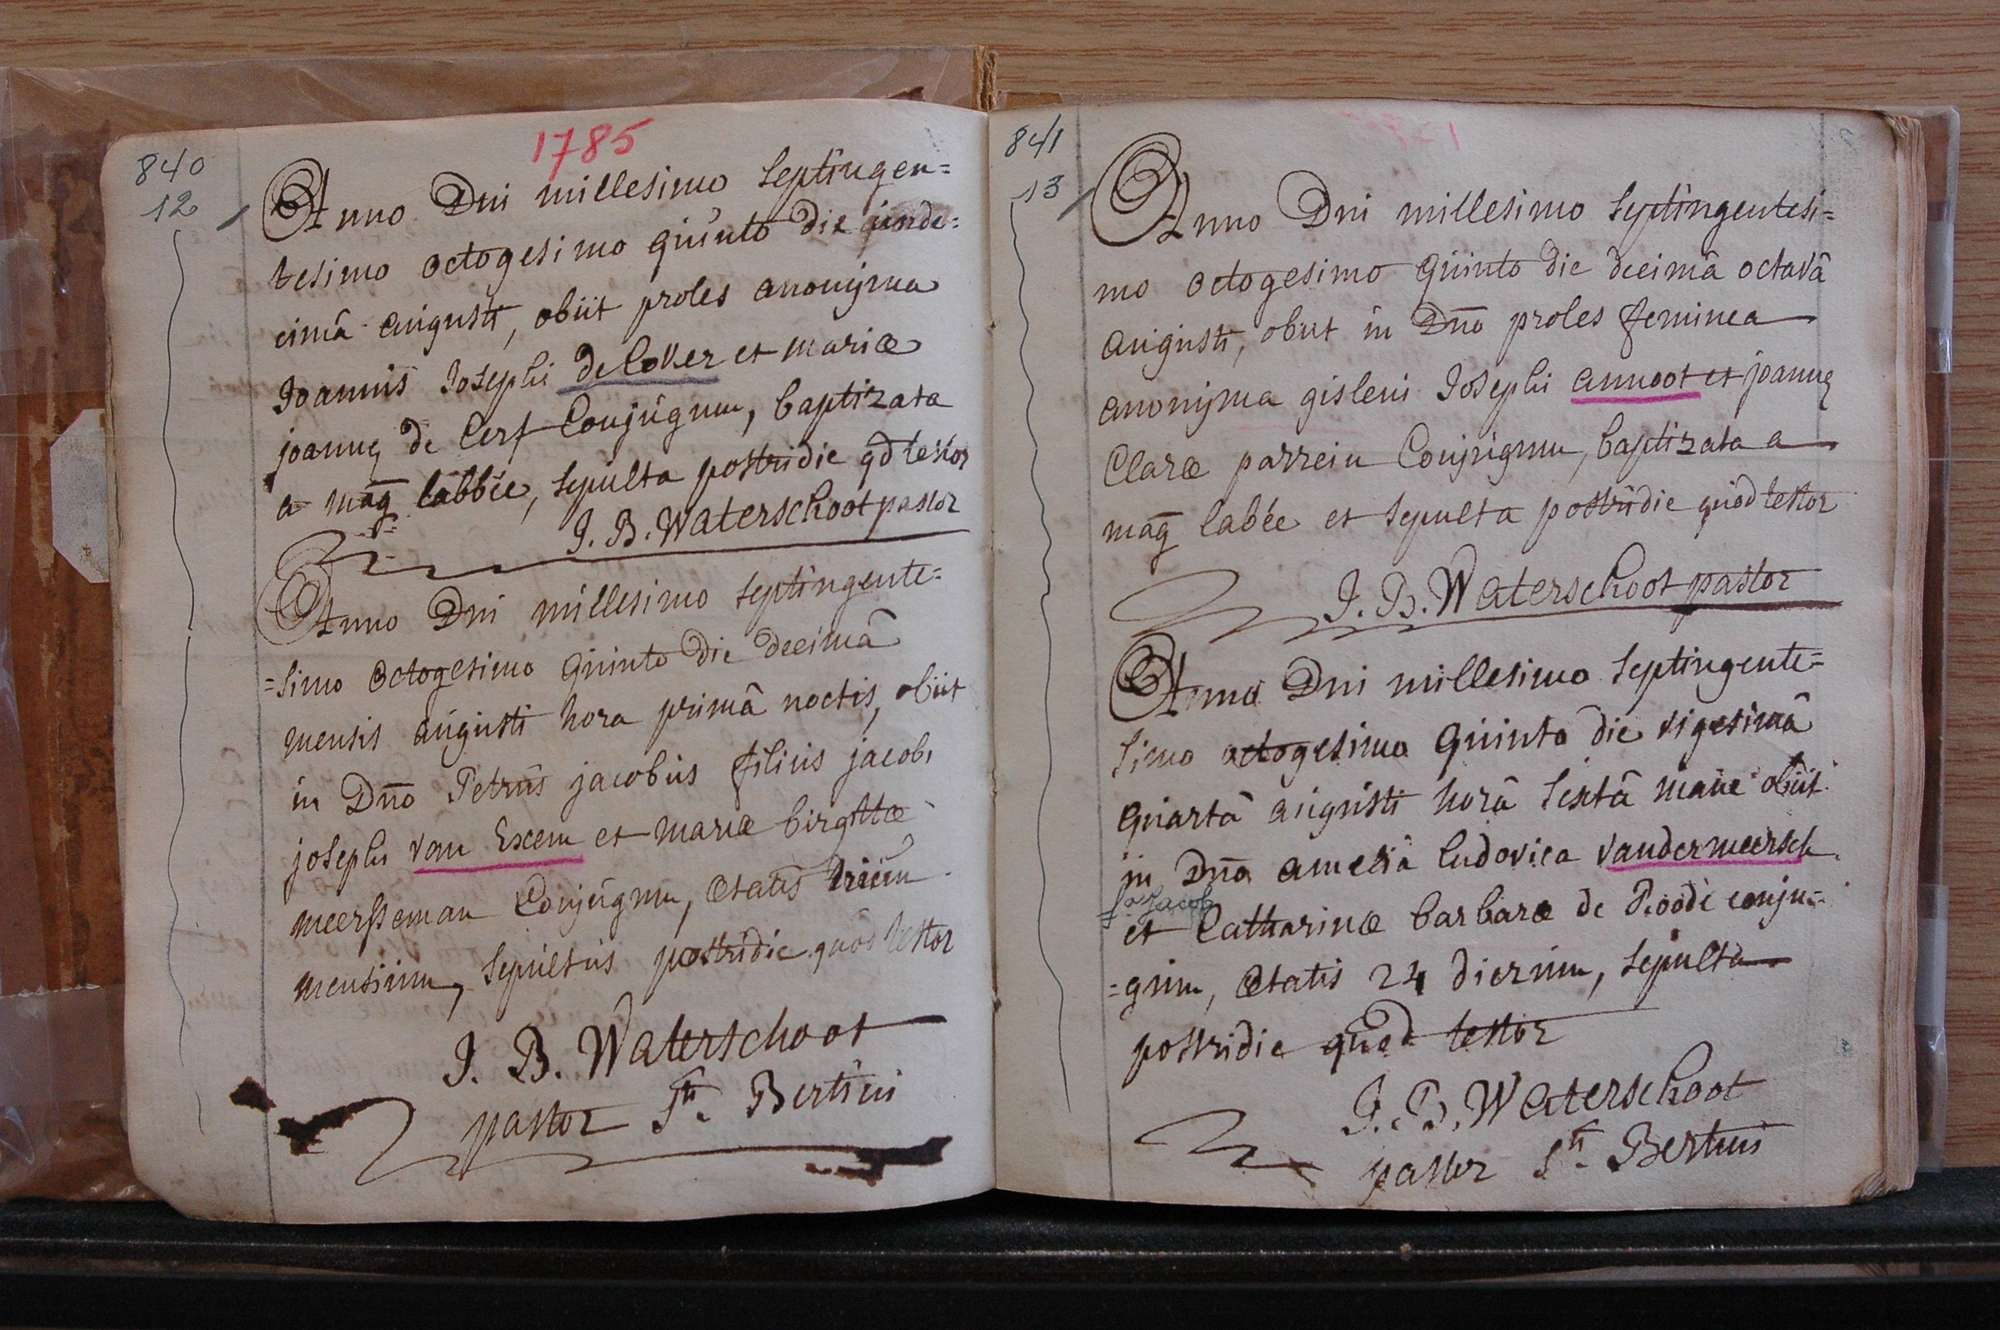 840
12
1785
Anno Dni millesimo septingen=
tesimo octogesimo quinto die unde=
cimâ augusti, obiit proles anonyma
Joannis Josephi de Cover et mariæ
joannæ de Cerf Conjugum, baptizata
a mag labbée, sepulta postridie qd testor
J. B. Waterschoot pastor
Anno Dni millesimo septingente=
=simo octogesimo quinto die decimâ
mensis augusti hora primâ noctis, obiit
in Dno Petrus jacobus filius jacobi
josephi van Exem et mariæ birgittæ
meersseman Conjugum, ætatis trium
mensium, sepultus postridie quod testor
J. B. Waterschoot
pastor Sti. Bertini
841
13
Anno Dni millesimo septingentesi=
mo octogesimo quinto die decimâ octavâ
augusti, obiit in Dno proles feminea
anonyma gisleni Josephi annoot et joannæ
Claræ parrein Conjugum, baptizata a
mag labée et sepulta postridie quod testor
J. B. Waterschoot pastor
Anno Dni millesimo septingente=
simo octogesimo quinto die vigesimâ
quartâ augusti horâ sextâ mane obiit
in Dno amelia ludovica vandermeersch
fa Jacob
et Catharinæ barbaræ de Roode conju=
=gum, ætatis 24 dierum, sepulta
postridie quod testor
J. B. Waterschoot
pastor Sti. Bertini